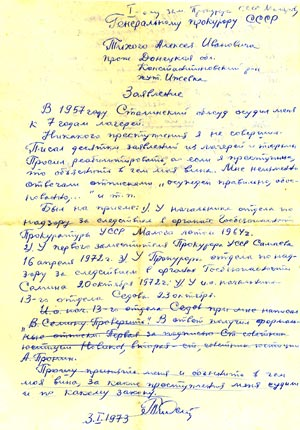 Генеральному прокурору СССР
Тихого Алексея Ивановича
прож Донецкая обл.
Константиновский рн
хут. Ижевка
Заявление
В 1957 году Сталинский облсуд осудил меня
к 7 годам лагерей.
Никакого преступления я не совершил.
Писал десятки заявлений из лагерей и тюрьмы
Просил реабилитировать, а если я преступник,
то объяснить в чем моя вина. Мне неизменно
отвечали отписками „осужден правильно, обос-
нованно..." и т.п.
Был на приеме: 1/ У начальника отдела по
надзору за следствием в органах Госбезопасности
Прокуратуры УССР Малого летом 1964г.
2/ У первого заместителя Прокурора УССР Самаева
16 апреля 1972г. 3/ У Прокурора отдела по над-
зору за следствием в органах Госбезопасности
Солина 20 октября 1972г. 4/ У начальника
13-го отдела Седова 23 октября.
13-го отдела Седов при мне написал
„В. Солину Проверить". В ответ получил формаль-
ные отписки первая за подписью Ст советник
юстиции вторая ст советник юстиции
А. Пронин.
Прошу принять меня и объяснить в чем
моя вина, за какие преступления меня судили
и по какому закону.
3.I.1973